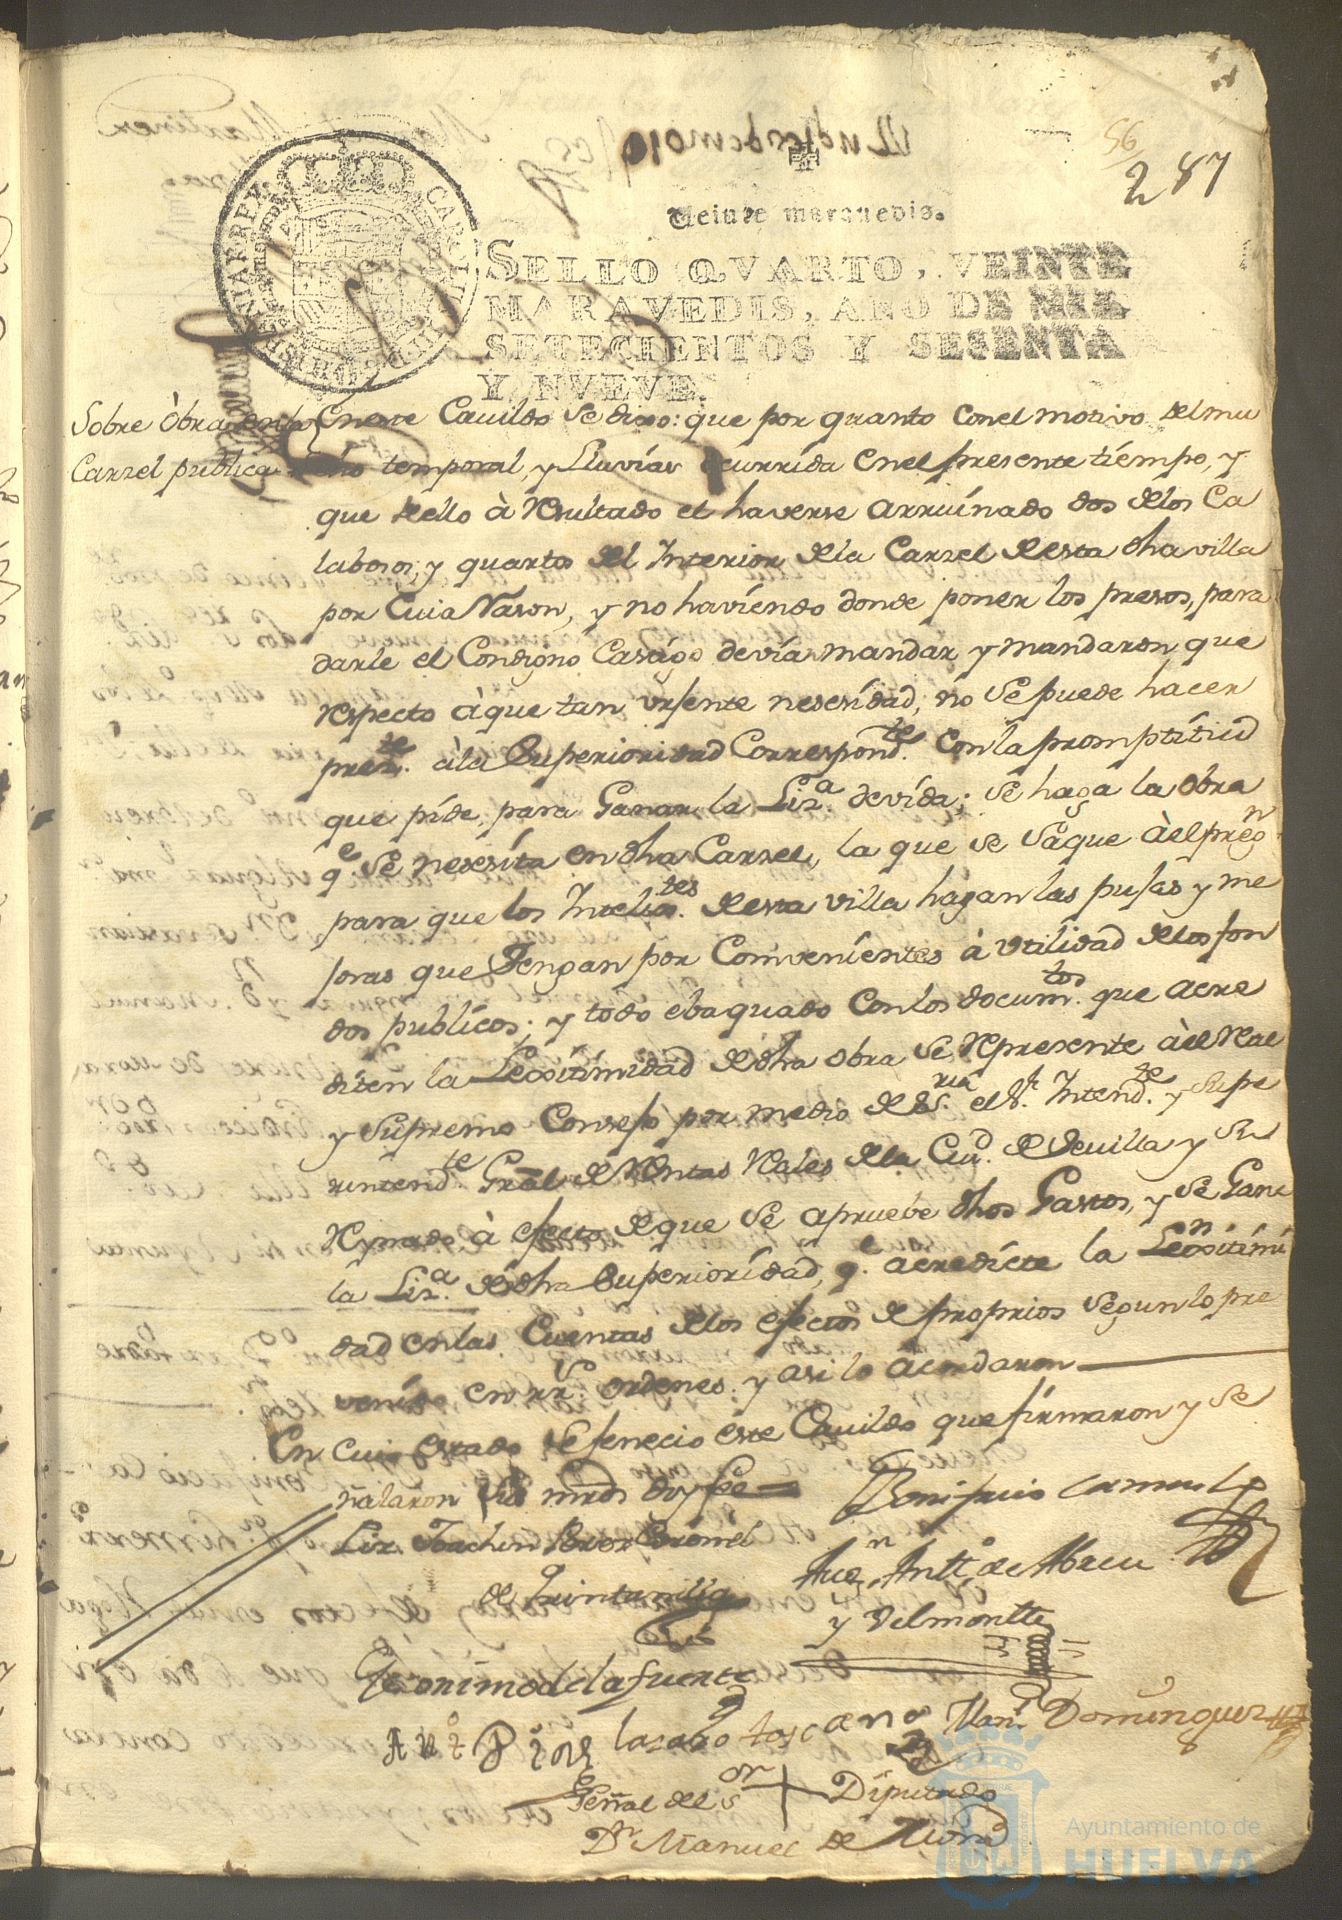 56
287
Veinte maravedis.
SELLO QVARTO, VEINTE
MARAVEDIS, AÑO DE MIL
SETECIENTOS Y SESENTA
Y NVEVE.
Sobre òbra enla
Carzel publica
Eneste Cavildo se dixo: que por quanto conel motivo delmu
cho temporal, y lluvias ocurrida enel presente tiempo, y
que dello à resultado el haverse arruinado dos delos Ca
labosos, y quartos del Interior dela Carzel desta dha villa
por Cuia razon, y no haviendo donde poner los presos, para
darle el Condigno Castigo devian mandar y mandaron, que
respecto àque tan urjente nesesidad, no se puede hacer
preste. àla Superioridad Correspondte. con la promptitud
que pide, para Ganar la Liza. devida; se haga la obra
qe se nesesita en dha Carzel, la que se saque àel pregn
para que los Inteligtes. desta villa hagan las pujas y me
joras que tengan por Combenientes à utilidad delos fon
dos publicos; y todo ebaquado con los documtos. que acre
diten la Lexitimidad de dha obra se represente àel Real
y Supremo Consejo por medio de Sria. el Sr. Intendte. y Supe
rintendte Gral de Rentas Rales dela Ciud. de Sevilla y su
Reynado, à efecto de que se apruebe dhos Gastos, y se Gane
la Liza. de dha Superioridad, qe. acredicte la Lexitimi
dad enlas Cuentas delos efectos de proprios segun lo pre
venido en rrs. ordenes. y asi lo acordaron
En cuio estado se fenecio este Cavildo que firmaron y se
ñalaron sus mrds doy fee
Bonifacio Camacho
Liz. Joachin Perez Coronel
de Quintanilla
Antt. de Abreu
y Delmontte
Geronimo de la fuente
Ant Pion
lasaro toscano
Manl. Dominguez
Señal del Sor + Diputado
Dn Manuel de
Ayuntamiento de
HUELVA